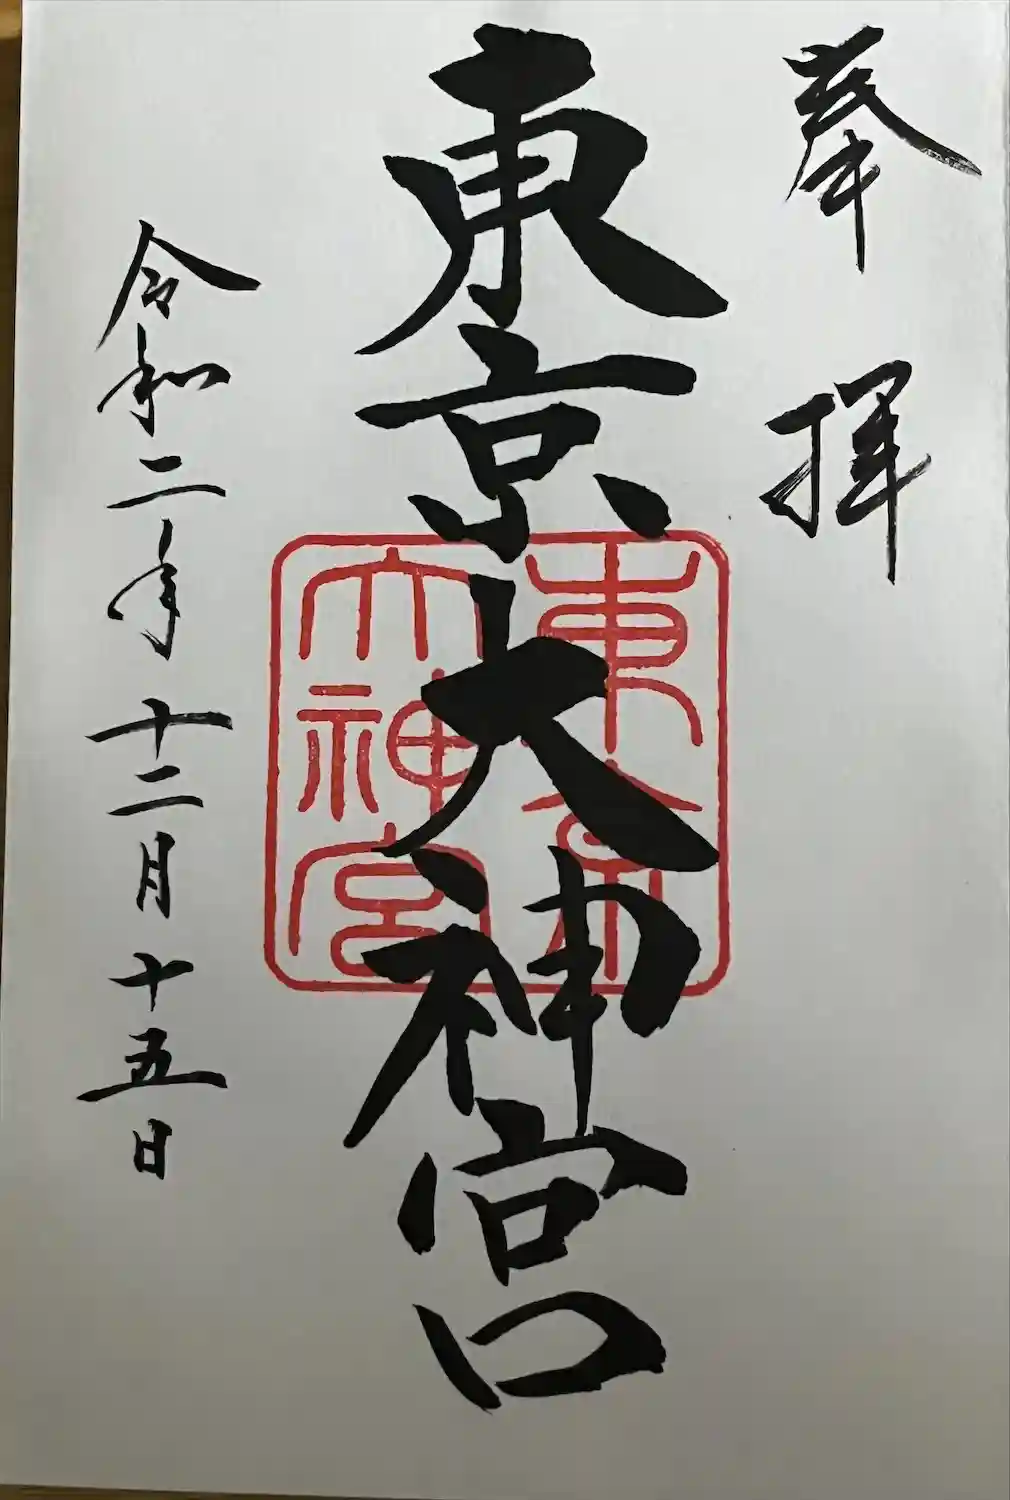 奉拝
東京大神宮
東京
大神宮
令和二年十二月十五日